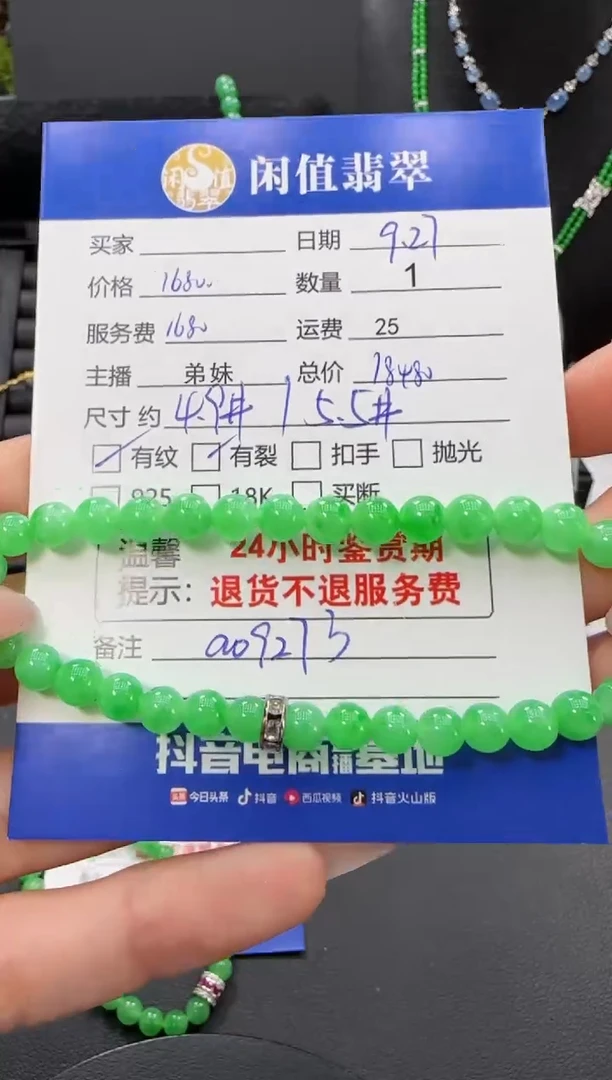 闲值翡翠
闲值翡翠
买家 日期 9.27
价格 1680. 数量 1
服务费 1680 运费 25
主播 弟妹 总价 18480
尺寸 约 4.9# / 5.5#
有纹 有裂 扣手 抛光
925 18K 买断
温馨 24小时鉴赏期
提示: 退货不退服务费
备注 a0927
抖音电商直播基地
今日头条 抖音 西瓜视频 抖音火山版